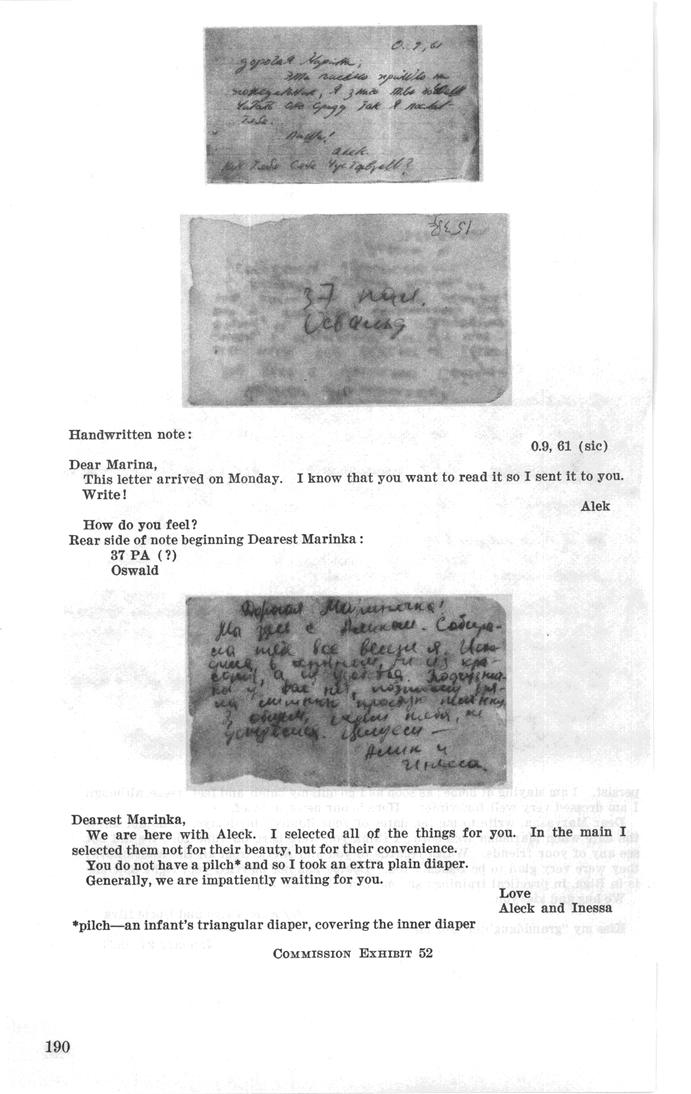 0.9,61
дорогая Марина,
это письмо пришло на
понедельник, я знаю
читать
тебе.
Пиши!
Алек.
Как тебе себе чувствуешь?
15 38
37 пал.
Освальд
Handwritten note:
0.9, 61 (sic)
Dear Marina,
This letter arrived on Monday. I know that you want to read it so I sent it to you.
Write!
Alek
How do you feel?
Rear side of note beginning Dearest Marinka:
37 PA (?)
Oswald
Дорогая Мариночка!
Мы здесь с Аликом. Собира-
ла тебе все вещи я.
а
у вас нет, поэтому
в общем, ждем тебя, не
Целуем —
Алик и
Инесса.
Dearest Marinka,
We are here with Aleck. I selected all of the things for you. In the main I
selected them not for their beauty, but for their convenience.
You do not have a pilch* and so I took an extra plain diaper.
Generally, we are impatiently waiting for you.
Love
Aleck and Inessa
*pilch—an infant's triangular diaper, covering the inner diaper
COMMISSION EXHIBIT 52
190